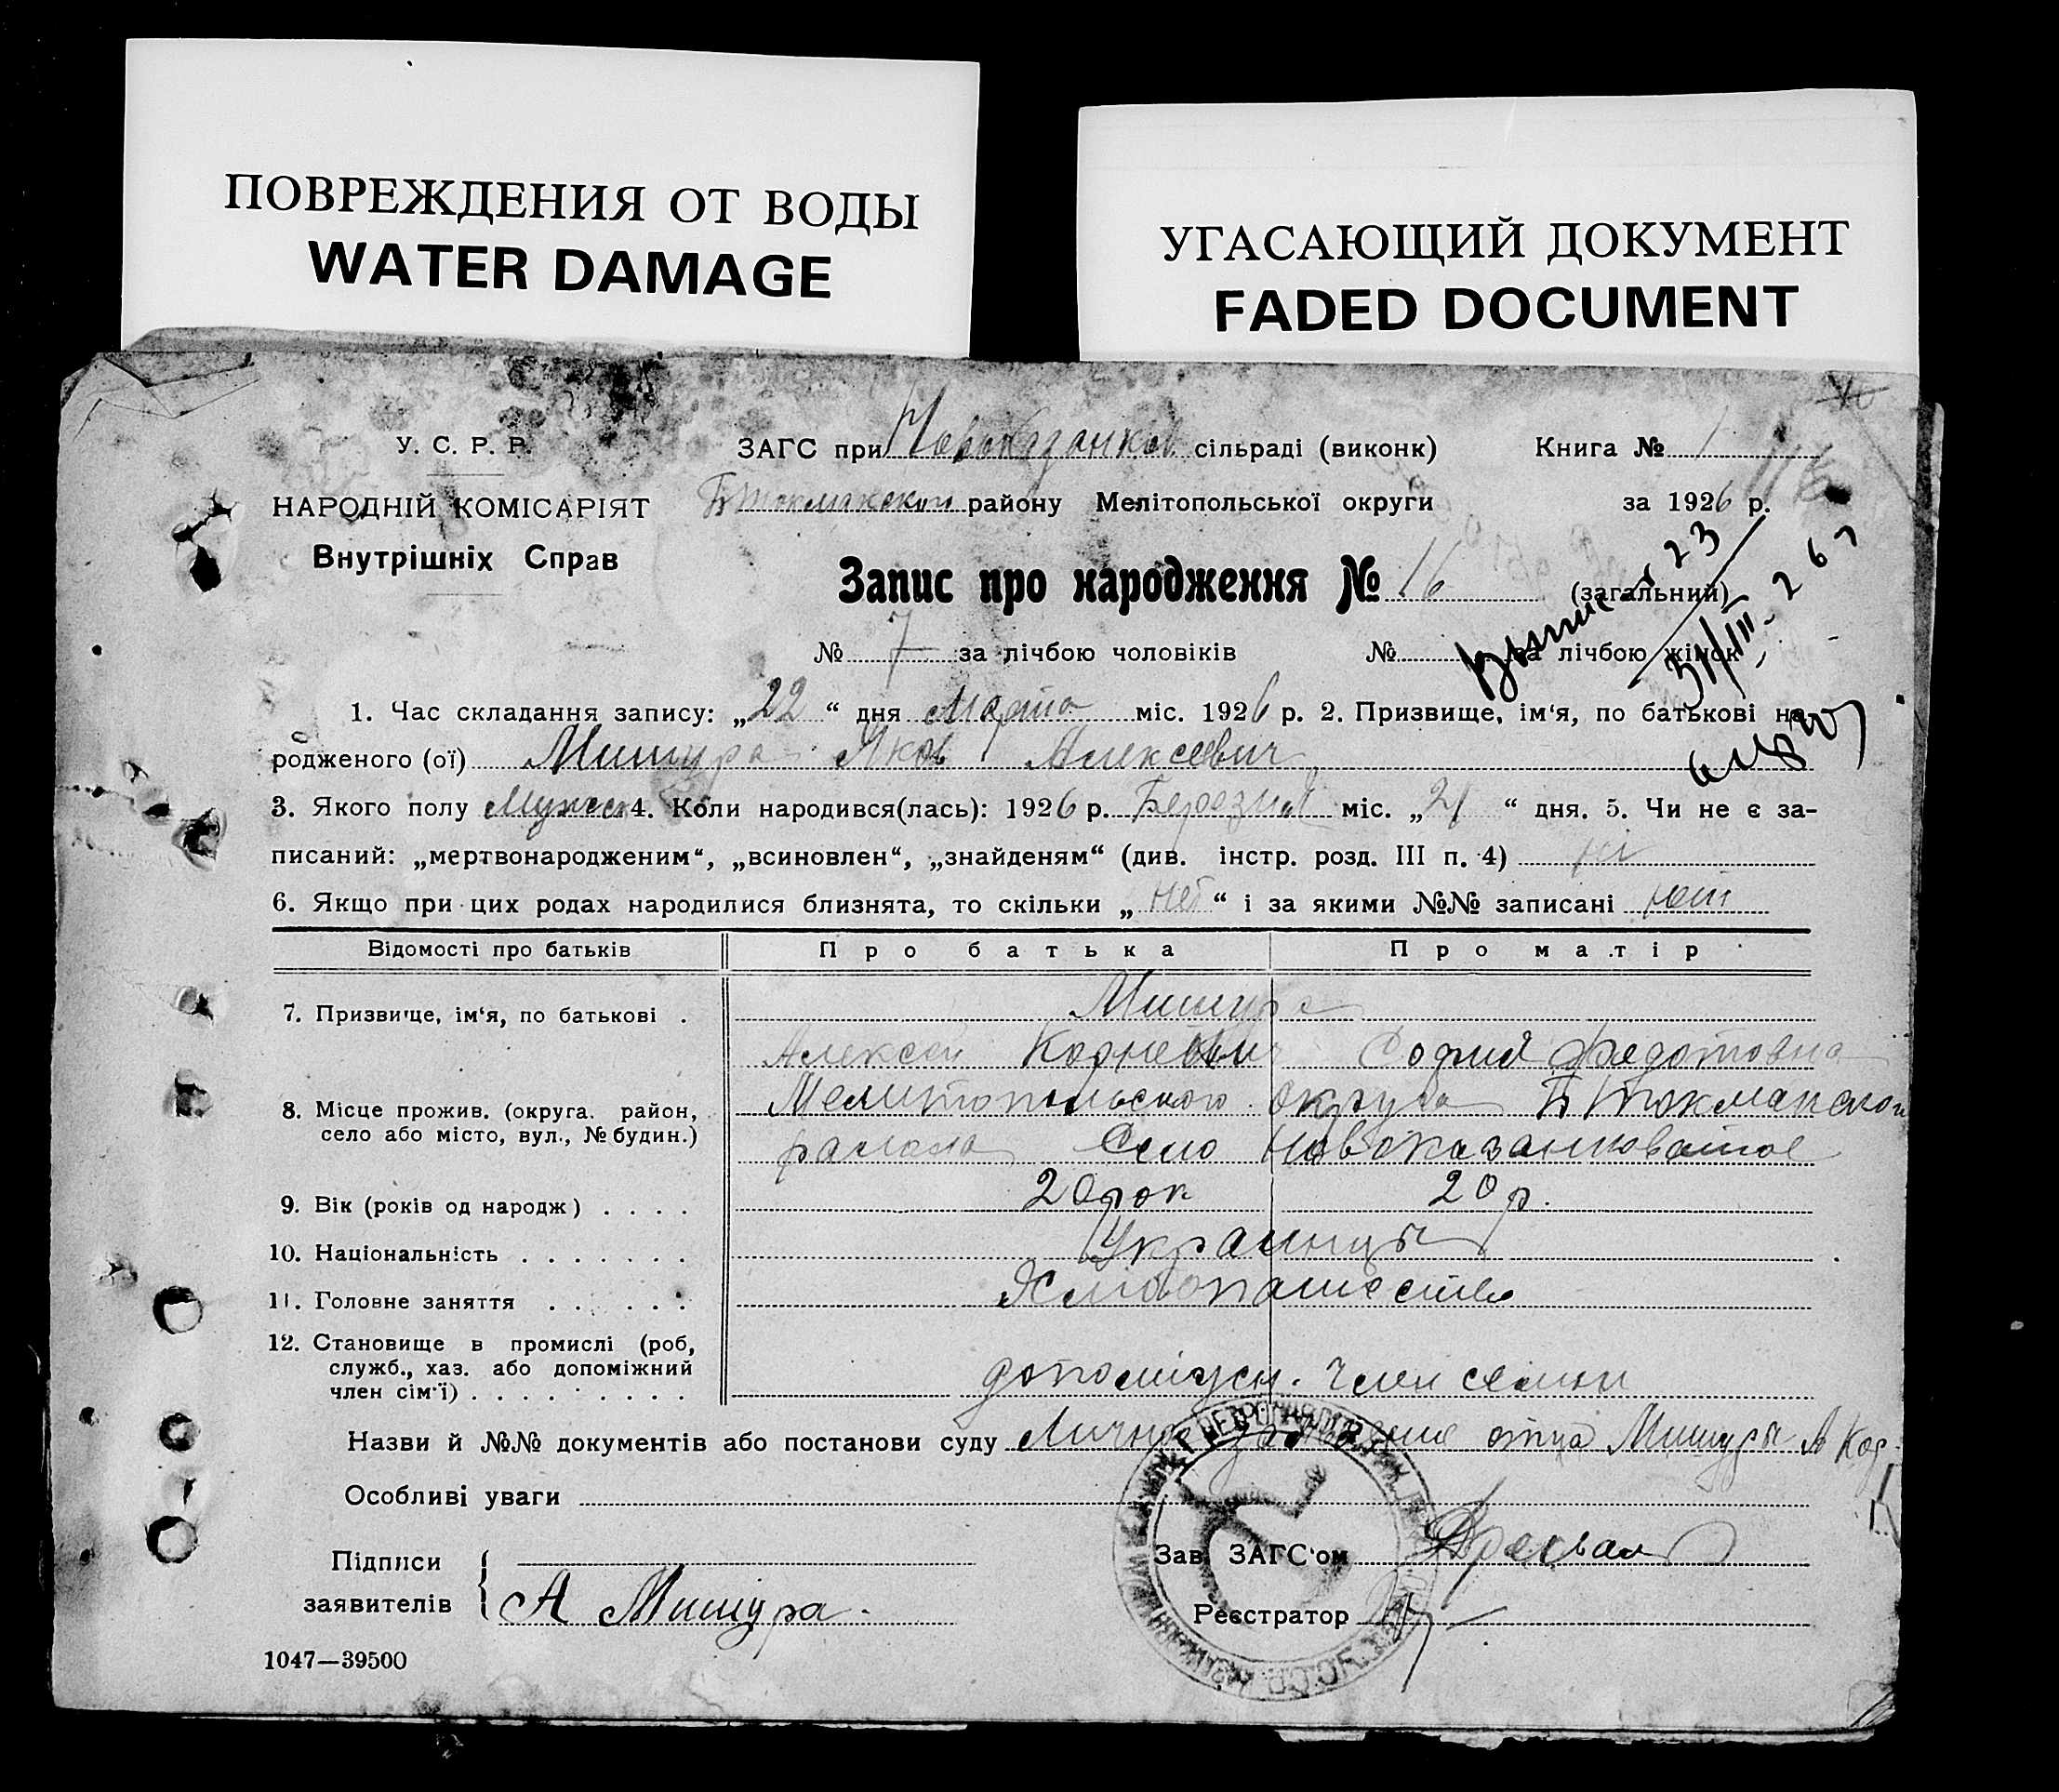 ПОВРЕЖДЕНИЯ ОТ ВОДЫ
WATER DAMAGE
УГАСАЮЩИЙ ДОКУМЕНТ
FADED DOCUMENT
У. С. Р. Р.
НАРОДНІЙ КОМІСАРІЯТ
Внутрішніх Справ
ЗАГС при сільраді (виконк)
Книга № 1
Б Токмакской району Мелітопольської округи
за 1926 р.
Запис про народження № 16 (загальний)
№ 7 за лічбою чоловіків № за лічбою жінок
23
31/III-26
1. Час складання запису: „22“ дня Марта міс. 1926 р. 2. Призвище, ім‘я, по батькові на-
родженого (ої) Мишура Яков Алексеевич
3. Якого полу Мужск 4. Коли народився(лась): 1926 р. Березня міс. „21“ дня. 5. Чи не є за-
писаний: „мертвонародженим“, „всиновлен“, „знайденям“ (див. інстр. розд. III п. 4) ні
6. Якщо при цих родах народилися близнята, то скільки „нет“ і за якими №№ записані нет
Відомості про батьків Про батька Про матір
7. Призвище, ім‘я, по батькові . Мишура
Алексей Корнеевич София Федотовна
8. Місце прожив. (округа. район, село або місто, вул., № будин.)
Мелитопольского округа Б Токмакской
района Село Новоказанковатое
9. Вік (років од народж) . . . . 20 рок 20 р.
10. Національність . . . . . . . Украинцы
11. Головне заняття . . . . . . Хлибопашество
12. Становище в промислі (роб,
служб., хаз. або допоміжний
член сім‘ї) . . . . . . . . . допоміжн. член семьи
Назви й №№ документів або постанови суду Личное заявление отца Мишуры А Кор.
Особливі уваги
Підписи
заявителів
А Мишура.
Зав. ЗАГС‘ом
Реєстратор
1047—39500